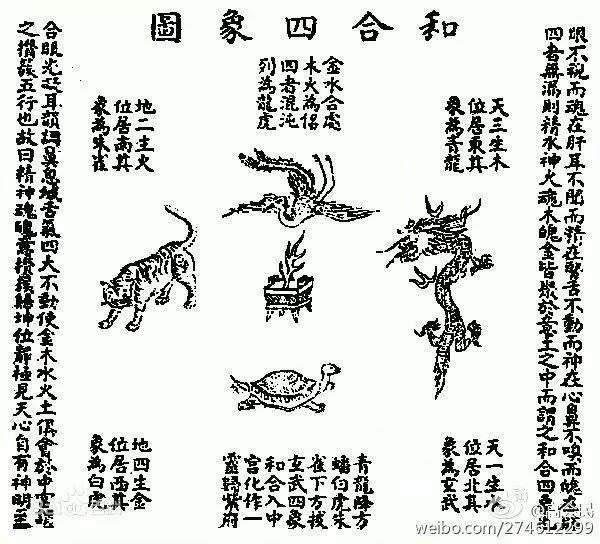 和合四象圖
眼不視而魂在肝耳不聞而精在腎舌不動而神在心鼻不嗅而魄在肺
四者無漏則精水神火魂木魄金皆聚於意土之中而謂之和合四象也
天三生木
位居東其
象為青龍
天一生水
位居北其
象為玄武
金水合處
木火為侶
四者混沌
列為龍虎
青龍降方
蟠白虎朱
雀下方拔
玄武四象
和合入中
宮化作一
靈歸紫府
地二生火
位居南其
象為朱雀
地四生金
位居西其
象為白虎
合眼光凝耳韻調鼻息緘舌氣四大不動使金木水火土俱會於中宮謂
之攢簇五行也故曰精神魂魄意攢簇歸坤位靜極見天心自有神明至
weibo.com/274612299